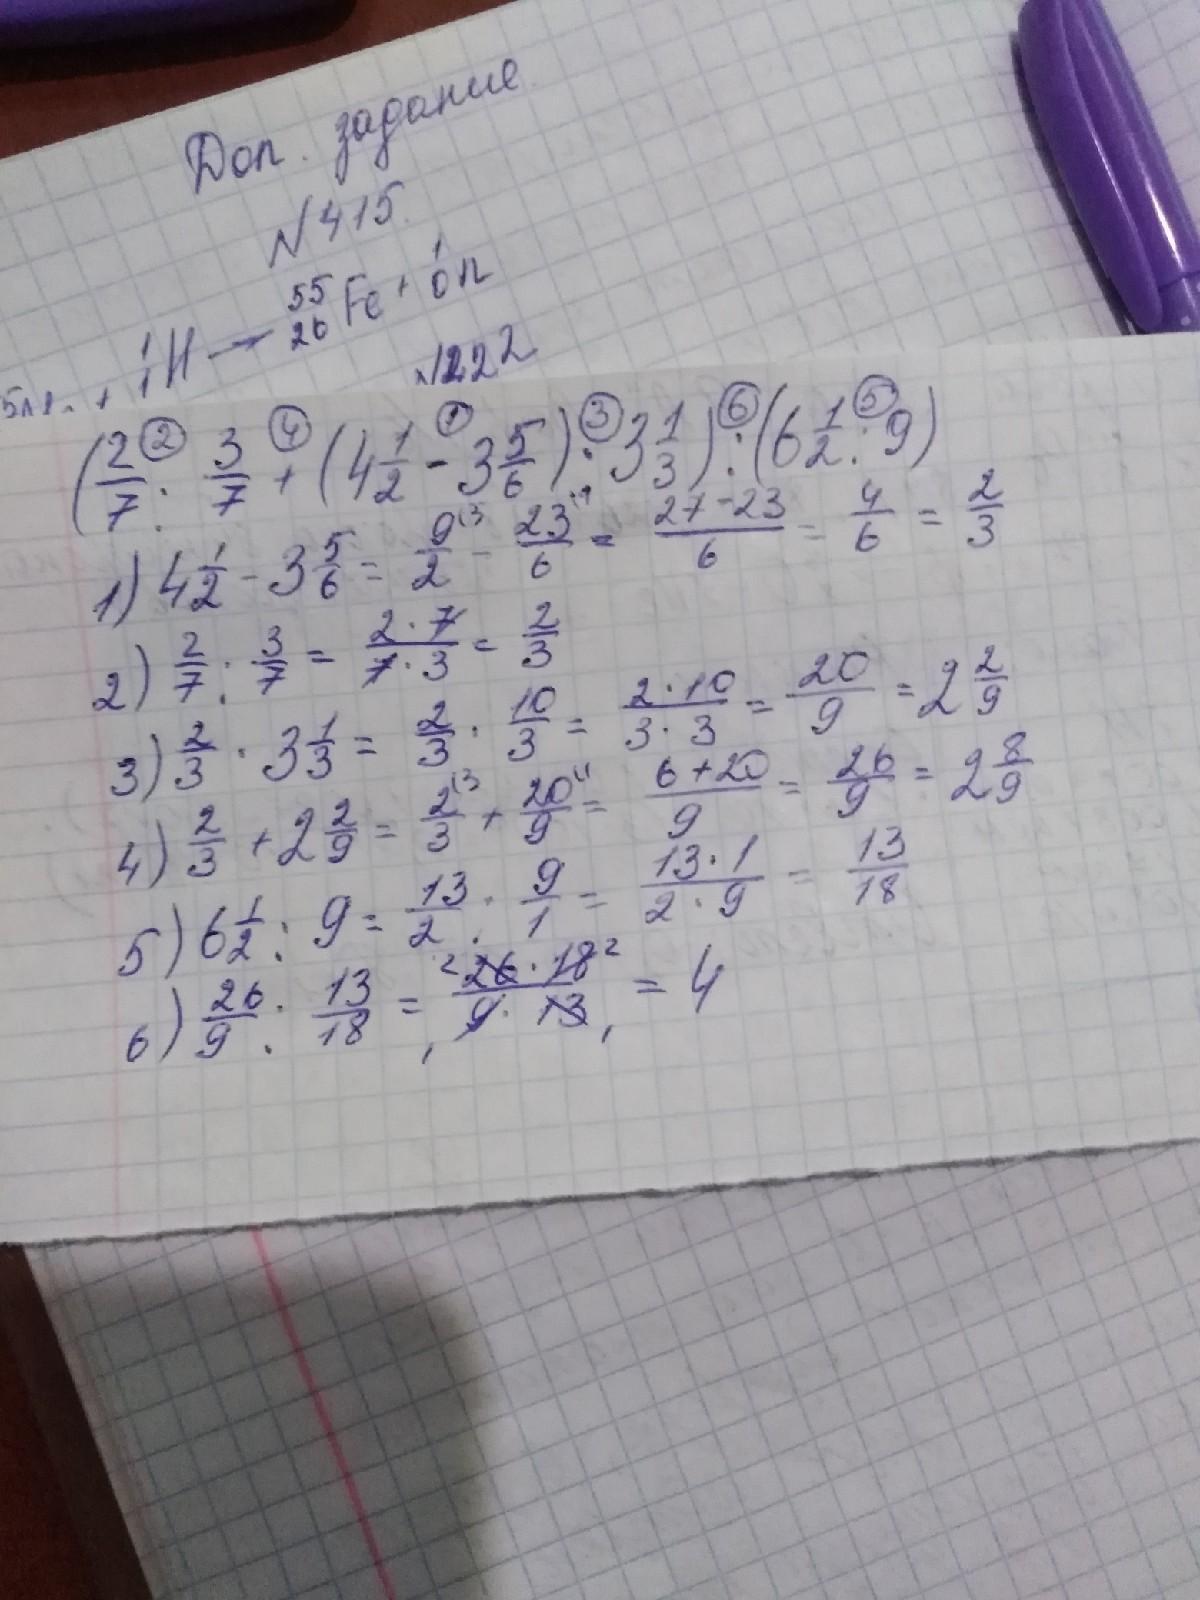 Доп. задание.
N 415.
+ ¹₁H → ⁵⁵₂₆Fe + ¹₀n
N1222
(2/7 : 3/7 + (4 1/2 - 3 5/6) · 3 1/3) : (6 1/2 : 9)
② ④ ① ③ ⑥ ⑤
1) 4 1/2 - 3 5/6 = 9/2 ⁽³ - 23/6 ⁽¹ = 27-23/6 = 4/6 = 2/3
2) 2/7 : 3/7 = 2·7/7·3 = 2/3
3) 2/3 · 3 1/3 = 2/3 · 10/3 = 2·10/3·3 = 20/9 = 2 2/9
4) 2/3 + 2 2/9 = 2/3 ⁽³ + 20/9 ⁽¹ = 6+20/9 = 26/9 = 2 8/9
5) 6 1/2 : 9 = 13/2 : 9/1 = 13·1/2·9 = 13/18
6) 26/9 : 13/18 = ²26·18²/₁9·13₁ = 4